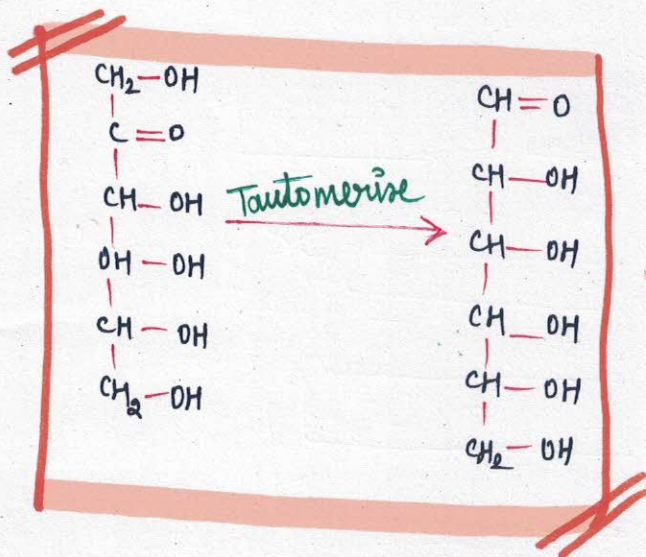 CH2-OH
C=O
CH-OH
OH-OH
CH-OH
CH2-OH
Tautomerise
CH=O
CH-OH
CH-OH
CH-OH
CH-OH
CH2-OH